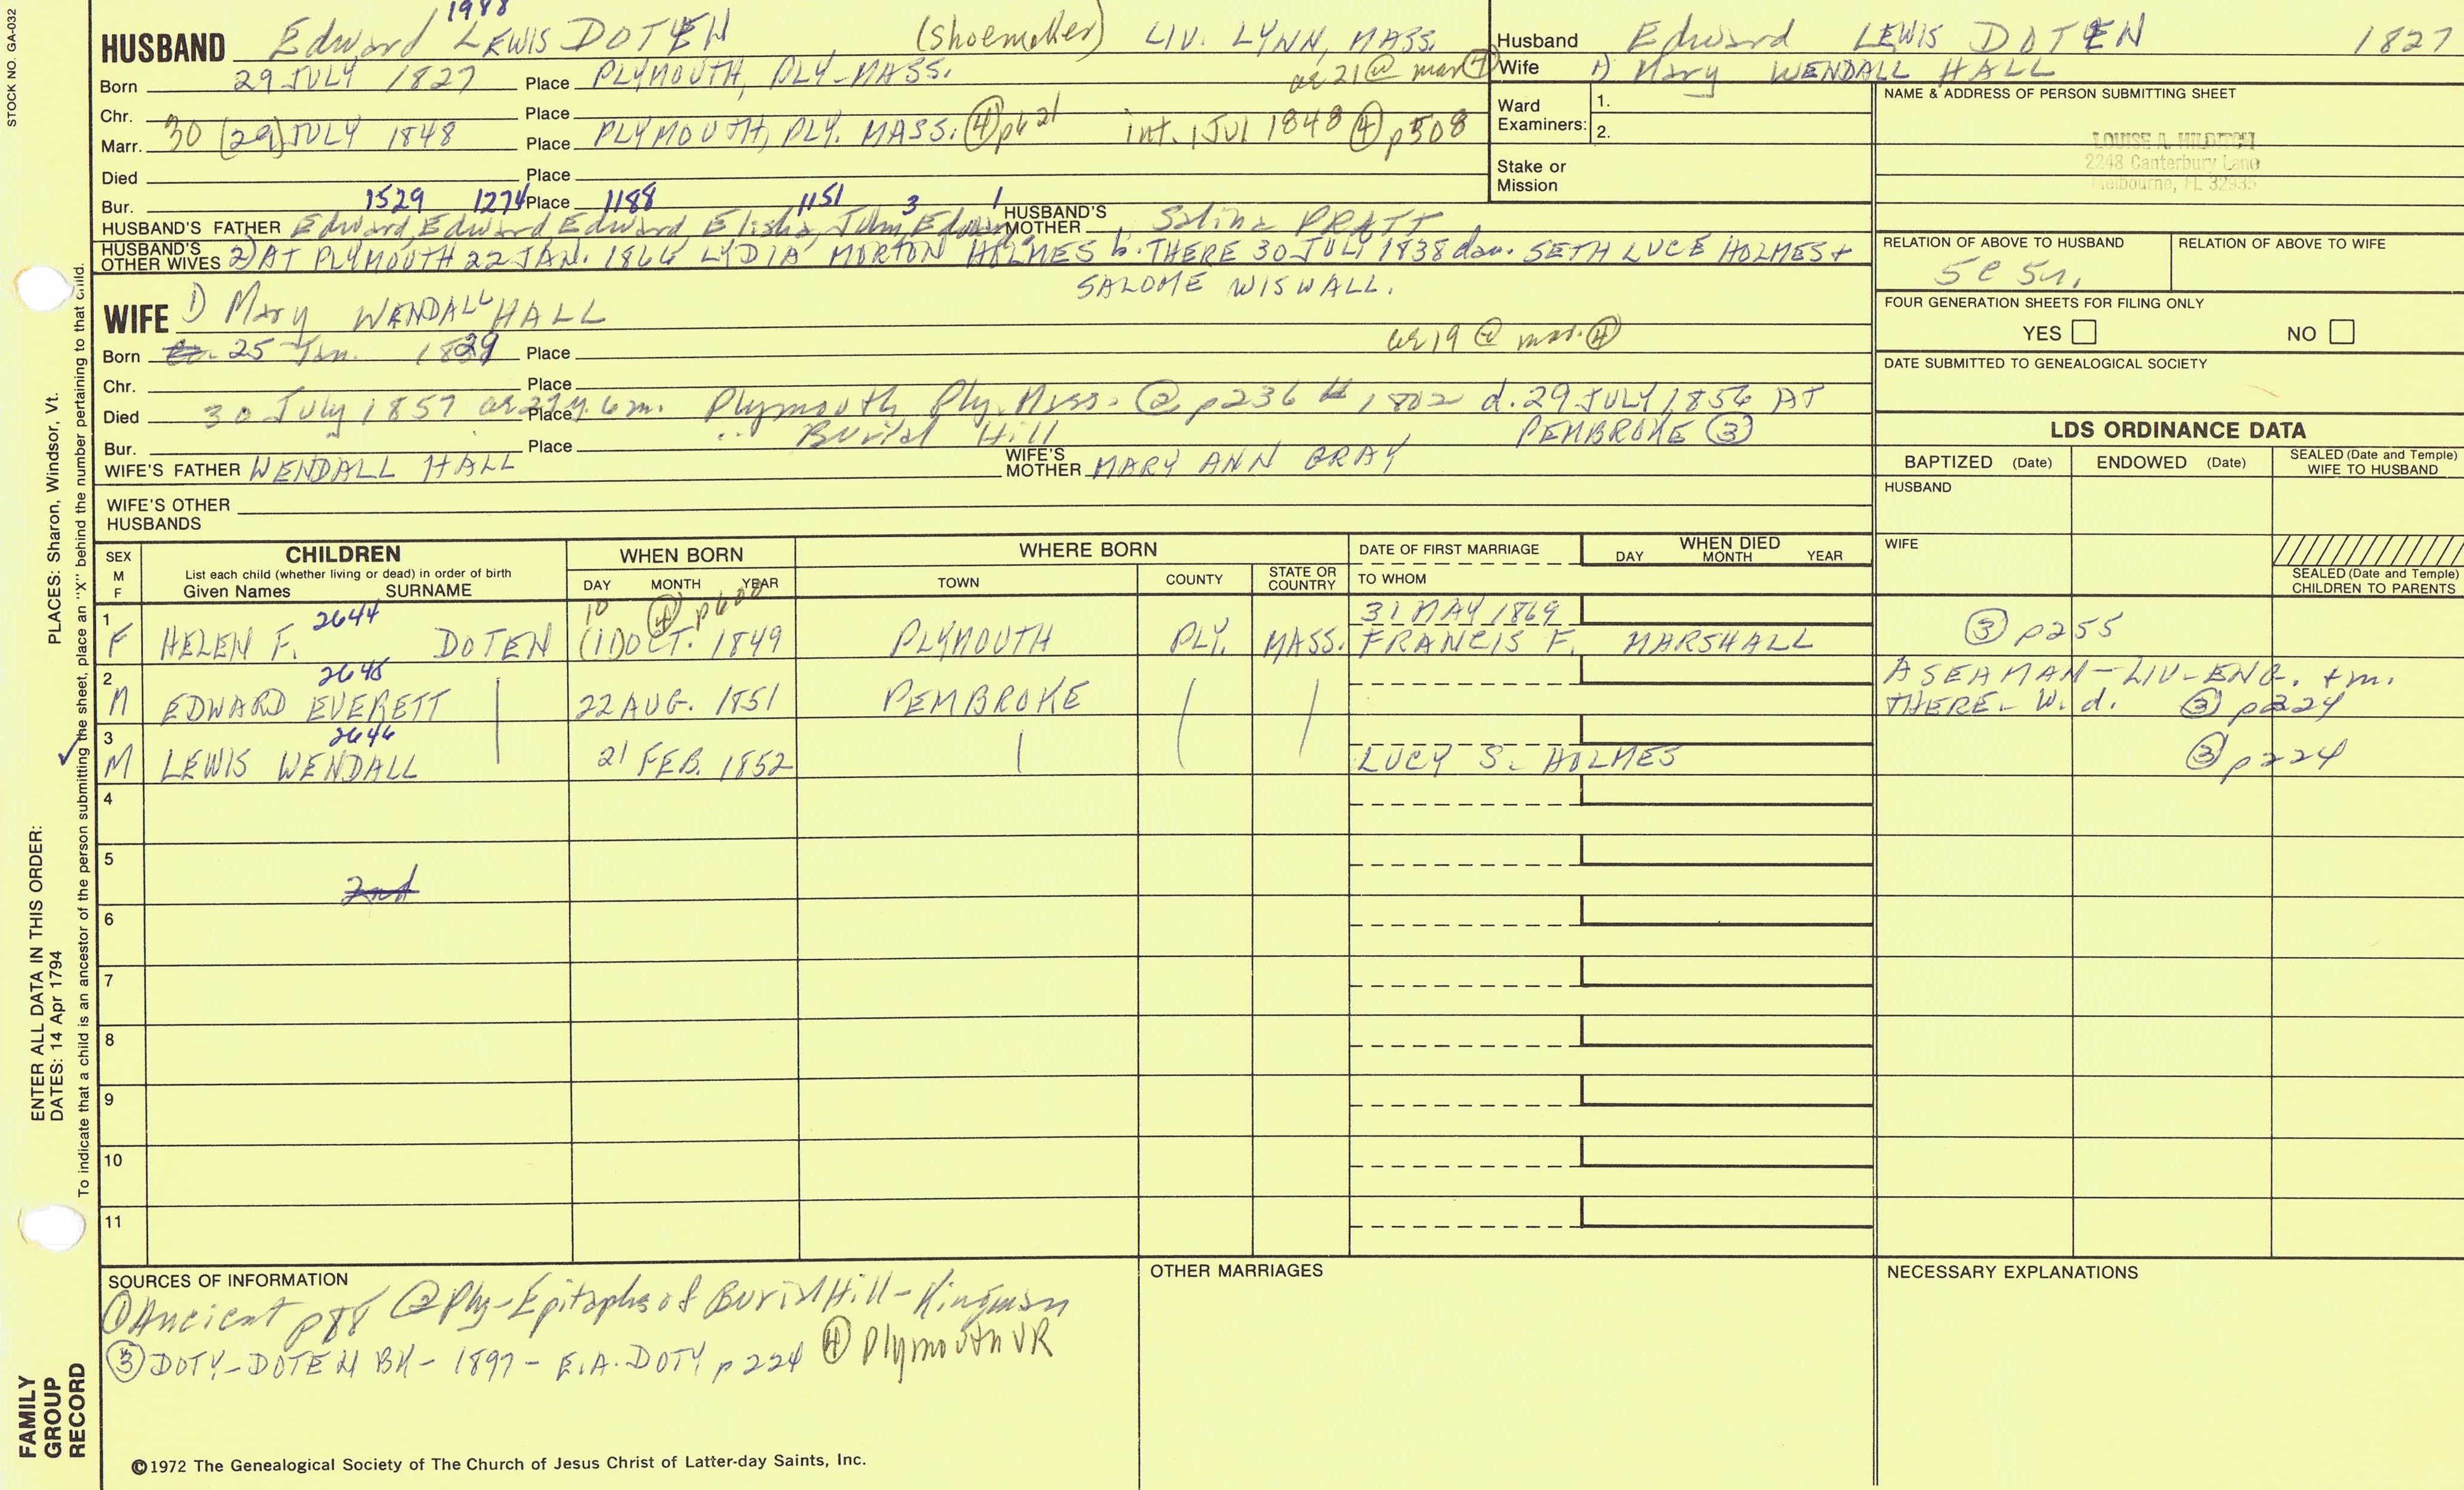 STOCK NO. GA-032
1988
HUSBAND Edward LEWIS DOTEN (Shoemaker) LIV. LYNN, MASS.
Born 29 JULY 1827 Place PLYMOUTH, PLY-MASS. ae 21 @ mar ④
Chr. Place
Marr. 30 (29) JULY 1848 Place PLYMOUTH, PLY. MASS. ④ p621 int. 1 Jul 1848 ④ p508
Died Place
Bur. Place
1529 1274 1188 1151 3 1
HUSBAND'S FATHER Edward, Edward, Edward, Elisha, John, Edward HUSBAND'S MOTHER Salina PRATT
HUSBAND'S OTHER WIVES 2) AT PLYMOUTH 22 JAN. 1866 LYDIA MORTON HOLMES b. THERE 30 JULY 1838 dau. SETH LUCE HOLMES +
SALOME WISWALL.
WIFE 1) Mary WENDALL HALL
ae 19 @ mar. ④
Born 25 Jan. 1829 Place
Chr. Place
Died 30 July 1857 ae 27y. 6m. Place Plymouth, Ply. Mass. ② p236 # 1802 d. 29 JULY 1856 AT
PEMBROKE ③
Bur. Place " Burial Hill
WIFE'S FATHER WENDALL HALL WIFE'S MOTHER MARY ANN BRAY
WIFE'S OTHER HUSBANDS
Husband Edward LEWIS DOTEN 1827
Wife 1) Mary WENDALL HALL
Ward Examiners: 1.
2.
Stake or Mission
NAME & ADDRESS OF PERSON SUBMITTING SHEET
LOUISE A. MILDITCH
2248 Canterbury Lane
Melbourne, FL 32935
RELATION OF ABOVE TO HUSBAND RELATION OF ABOVE TO WIFE
FOUR GENERATION SHEETS FOR FILING ONLY
YES NO
DATE SUBMITTED TO GENEALOGICAL SOCIETY
LDS ORDINANCE DATA
BAPTIZED (Date) ENDOWED (Date) SEALED (Date and Temple) WIFE TO HUSBAND
HUSBAND
WIFE
SEALED (Date and Temple) CHILDREN TO PARENTS
SEX M F CHILDREN WHEN BORN WHERE BORN DATE OF FIRST MARRIAGE WHEN DIED
List each child (whether living or dead) in order of birth
Given Names SURNAME DAY MONTH YEAR TOWN COUNTY STATE OR COUNTRY TO WHOM DAY MONTH YEAR
2644 10 ④ 31 MAY 1869
1 F HELEN F. DOTEN (11) OCT. 1849 PLYMOUTH PLY. MASS. FRANCIS F. MARSHALL ③ p255
2645 A SEAMAN-LIV-ENG. + m.
2 M EDWARD EVERETT 22 AUG. 1851 PEMBROKE THERE- W. d. ③ p224
2646
3 M LEWIS WENDALL 21 FEB. 1852 LUCY S. HOLMES ③ p224
4
5
2nd
6
7
8
9
10
11
SOURCES OF INFORMATION
① Ancient p88 ② Ply-Epitaphs of Burial Hill-Kingman
③ DOTY-DOTEN BK-1897-E.A. DOTY p224 ④ Plymouth VR
OTHER MARRIAGES
NECESSARY EXPLANATIONS
©1972 The Genealogical Society of The Church of Jesus Christ of Latter-day Saints, Inc.
FAMILY GROUP RECORD
ENTER ALL DATA IN THIS ORDER:
DATES: 14 Apr 1794
PLACES: Sharon, Windsor, Vt.
To indicate that a child is an ancestor of the person submitting the sheet, place an "X" behind the number pertaining to that child.